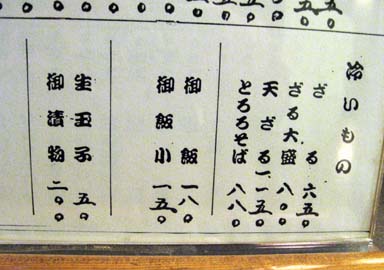 冷いもの
ざる 六五〇
ざる大盛 八〇〇
天ざる 一一五〇
とろろそば 八八〇
御飯 一八〇
御飯小 一五〇
生玉子 五〇
御漬物 二〇〇